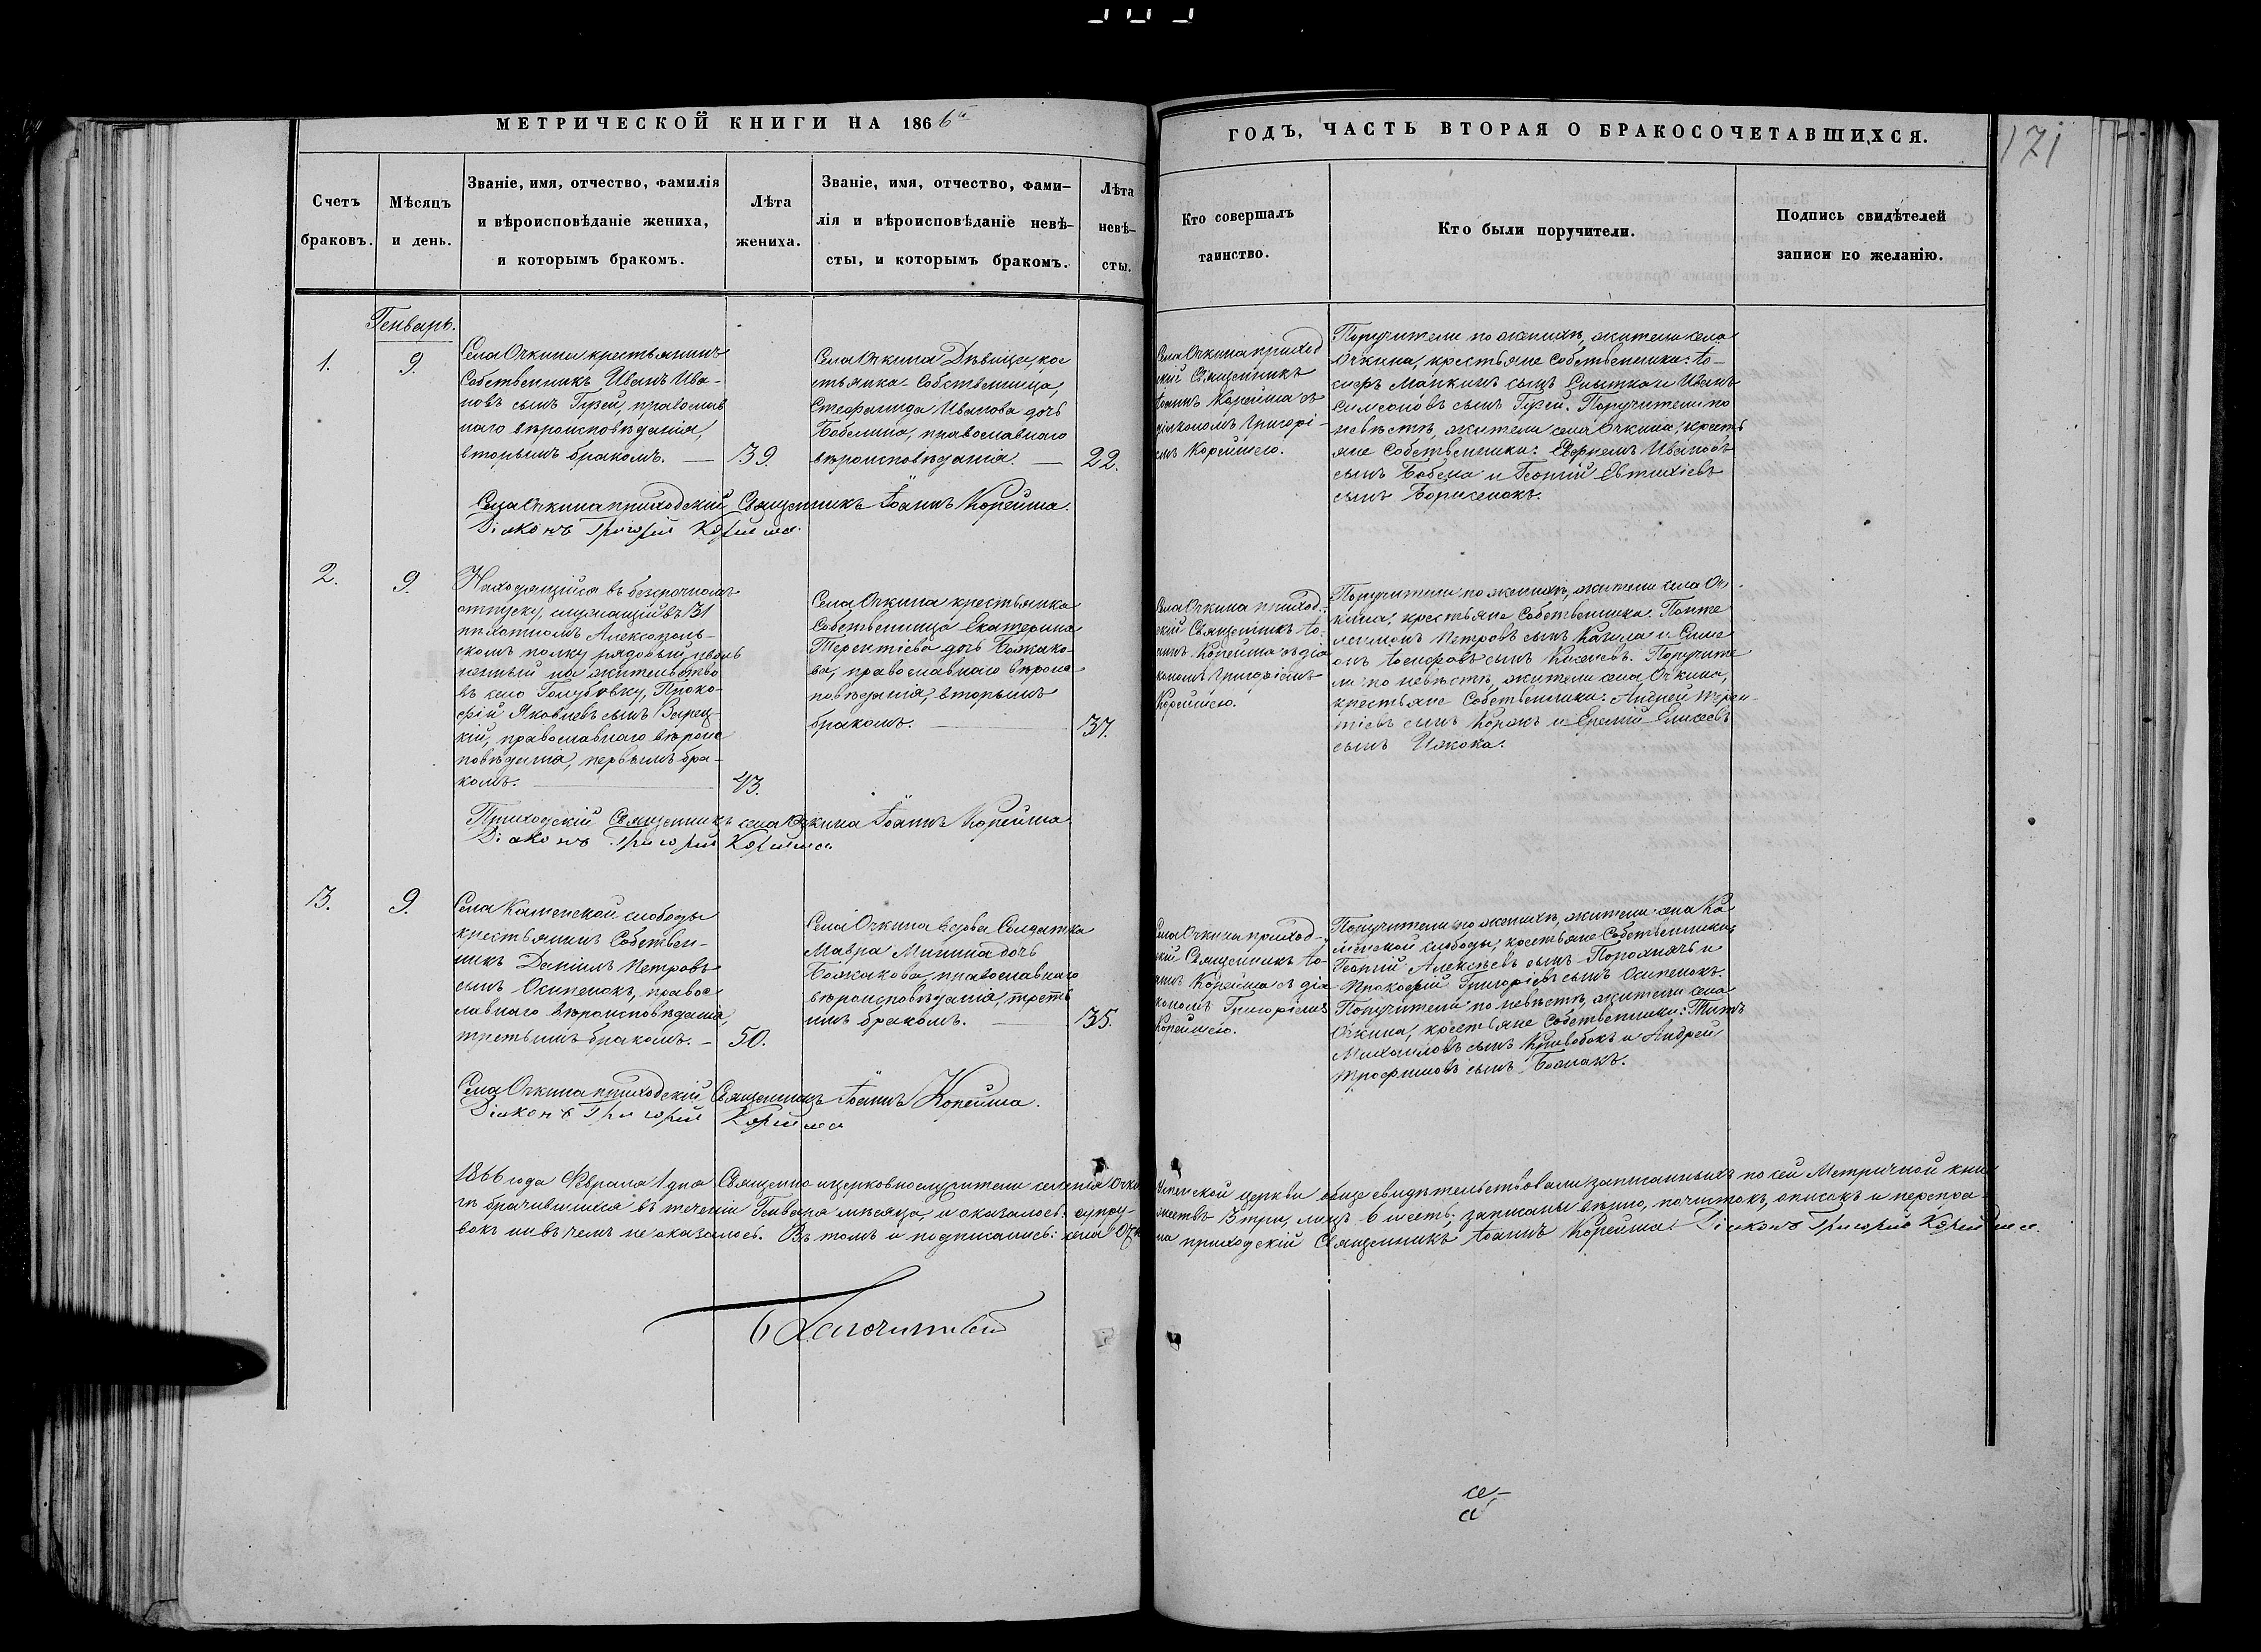 МЕТРИЧЕСКОЙ КНИГИ НА 1866й
ГОДЪ, ЧАСТЬ ВТОРАЯ О БРАКОСОЧЕТАВШИХСЯ.
171
Счетъ
браковъ.
Мѣсяцъ
и день.
Званіе, имя, отчество, фамилія
и вѣроисповѣданіе жениха,
и которымъ бракомъ.
Лѣта
жениха.
Званіе, имя, отчество, фами-
лія и вѣроисповѣданіе невѣ-
сты, и которымъ бракомъ.
Лѣта
невѣ-
сты.
Кто совершалъ
таинство.
Кто были поручители.
Подпись свидѣтелей
записи по желанію.
Генварь.
1.
9.
Села Очкина крестьянинъ
Собственникъ Иванъ Ива-
новъ сынъ Гузей, православ
наго вѣроисповѣданія,
вторымъ бракомъ. —
39.
Села Очкина Дѣвица, кре
стьянка Собственница,
Стефанида Иванова дочь
Бобелина, православнаго
вѣроисповѣданія. —
22.
Села Очкина приход
скій Священникъ
Іоаннъ Корейша съ
діакономъ Григорі-
емъ Корейшею.
Поручители по женихѣ, жители села
Очкина, крестьяне Собственники: Іо-
сифъ сынъ и Иванъ
Симеоновъ сынъ Гузей. Поручители по
невѣстѣ, жители села Очкина, кресть
яне Собственники: Ивановъ
сынъ Бобела и Георгій Евтихіевъ
сынъ Борисенокъ.
Села Очкина приходскій Священникъ Іоаннъ Корейша.
Діаконъ Григорій Корейша.
2.
9.
Находящійся въ безсрочномъ
отпуску, служащій въ 31
пѣхотномъ Алексополь-
скомъ полку рядовый, уволь
ненный на жительство
въ село Голубовку, Проко-
фій Яковлевъ сынъ Зарец-
кій, православнаго вѣроис
повѣданія, первымъ бра-
комъ. —
43.
Села Очкина крестьянка
Собственница Екатерина
Терентіева дочь Божако-
ва, православнаго вѣроис
повѣданія, вторымъ
бракомъ. —
37.
Села Очкина приход-
скій Священникъ Іо-
аннъ Корейша съ діа
кономъ Григоріемъ
Корейшею.
Поручители по женихѣ, жители села Оч-
кина, крестьяне Собственники: Панте
леимонъ Петровъ сынъ и Симе
онъ Іосифовъ сынъ. Поручите
ли по невѣстѣ, жители села Очкина,
крестьяне Собственники: Андрей Терен-
тіевъ сынъ и Елисеевъ
сынъ
Приходскій Священникъ села Очкина Іоаннъ Корейша
Діаконъ Григорій Корейша
3.
9.
Села Каменской слободы
крестьянинъ Собствен-
никъ Даніилъ Петровъ
сынъ Осипенокъ, правос
лавнаго вѣроисповѣданія,
третьимъ бракомъ. —
50.
Села Очкина вдова Солдатка
Мавра Минина дочь
Божакова, православнаго
вѣроисповѣданія, треть
имъ бракомъ. —
35.
Села Очкина приход-
скій Священникъ Іо-
аннъ Корейша съ діа
кономъ Григоріемъ
Корейшею.
Поручители по женихѣ, жители села Ка
менской слободы, крестьяне Собственники:
Георгій Алексѣевъ сынъ и
Прокофій Григоріевъ сынъ Осипенокъ.
Поручители по невѣстѣ, жители села
Очкина, крестьяне Собственники: Титъ
Михаиловъ сынъ Кривобокъ и Андрей
Трофимовъ сынъ Божакъ.
Села Очкина приходскій Священникъ Іоаннъ Корейша.
Діаконъ Григорій Корейша
1866 года Февраля 1 дня Священно и церковнослужители селенія Очки
Успенской церкви обще свидѣтельствовали записанныхъ по сей Метричной кни
гѣ брачившихся въ теченіи Генваря мѣсяца, и оказалось: супру-
жествъ 3 три, лицъ 6 шесть; записаны вѣрно, почистокъ, описокъ и переправ-
вокъ ни въ чемъ не оказалось. Въ томъ и подписались: села Очки
на приходскій Священникъ Іоаннъ Корейша Діаконъ Григорій Корейша.